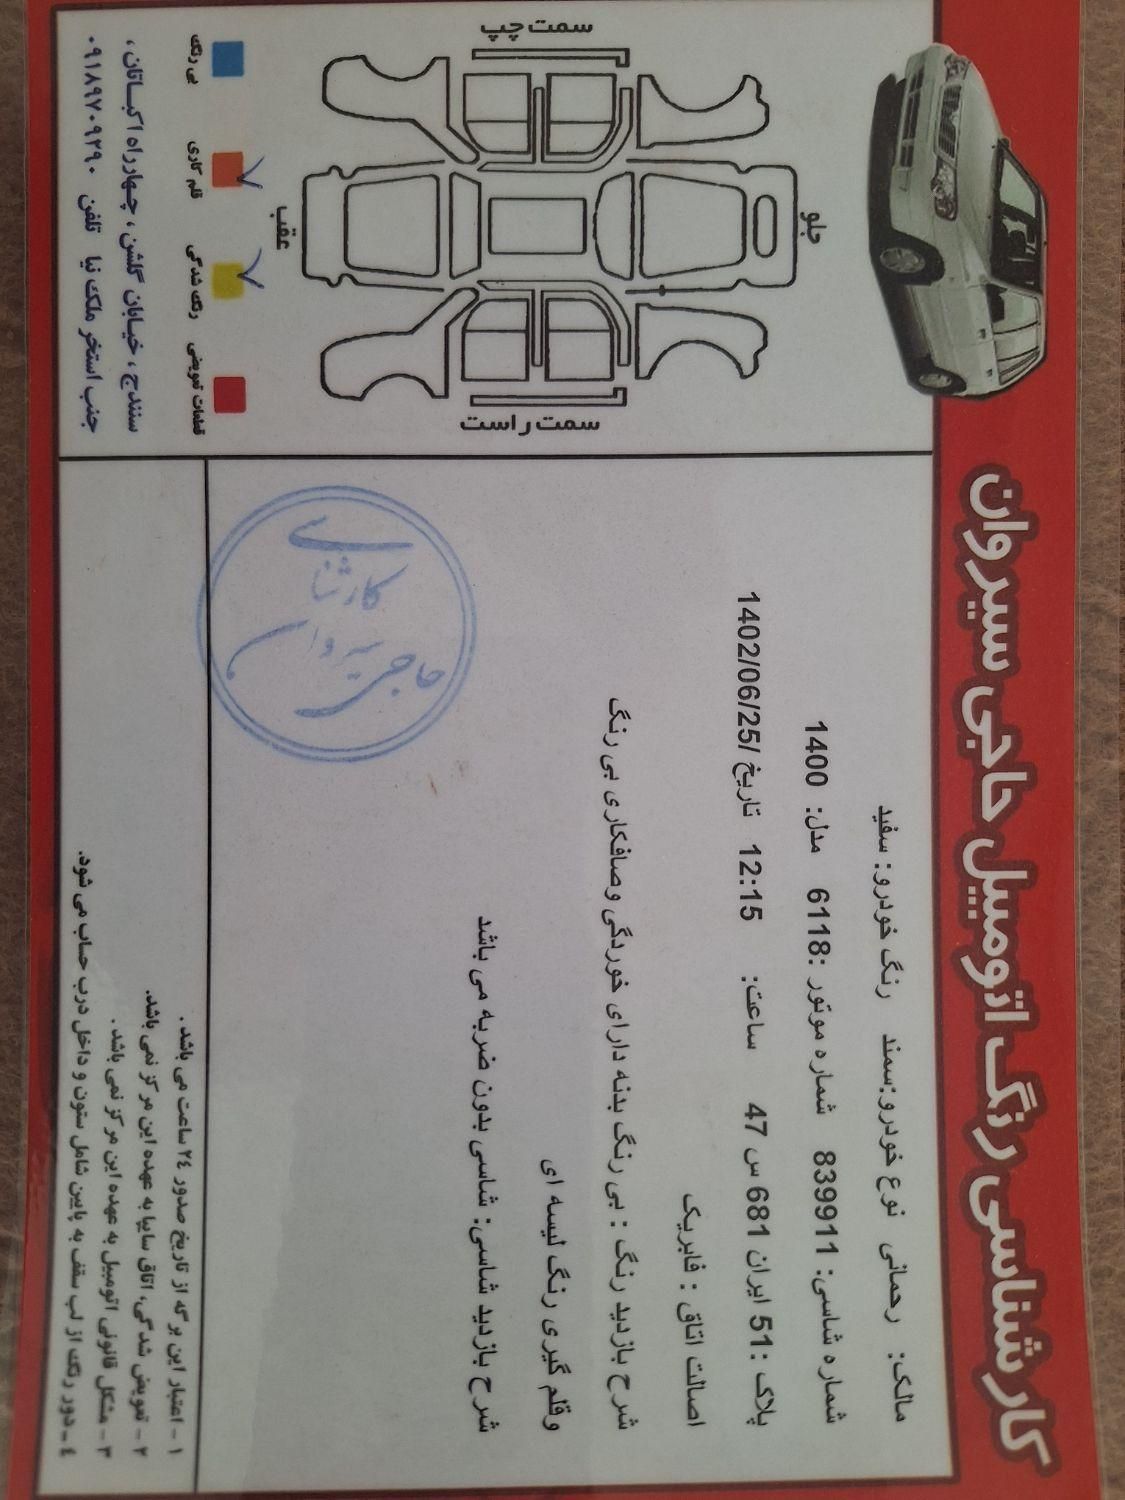 کارشناسی رنگ اتومبیل حاجی سیروان
مالک: رحمانی نوع خودرو:سمند رنگ خودرو: سفید
شماره شاسی: 839911 شماره موتور :6118 مدل: 1400
پلاک :51 ایران 681 س 47 ساعت: 12:15 تاریخ /1402/06/25
اصالت اتاق : فابریک
شرح بازدید رنگ : بی رنگ بدنه دارای خوردگی وصافکاری بی رنگ
وقلم گیری رنگ لیسه ای
شرح بازدید شاسی: شاسی بدون ضربه می باشد
کارشناسی
حاجی سیروان
۱ - اعتبار این برگه از تاریخ صدور ۲۴ ساعت می باشد .
۲ - تعویض شدگی، اتاق سایپا به عهده این مرکز نمی باشد.
۳ - مشکل قانونی اتومبیل به عهده این مرکز نمی باشد .
۴ - دور رنگ از لب سقف به پایین شامل ستون و داخل درب حساب می شود.
سمت چپ
جلو
عقب
سمت راست
بی رنگ
قلم کاری
رنگ شدگی
قطعات تعویضی
سنندج ، خیابان گلشن ، چهارراه اکباتان ،
جنب استخر ملک نیا تلفن ۰۹۱۸۹۷۰۹۲۹۰